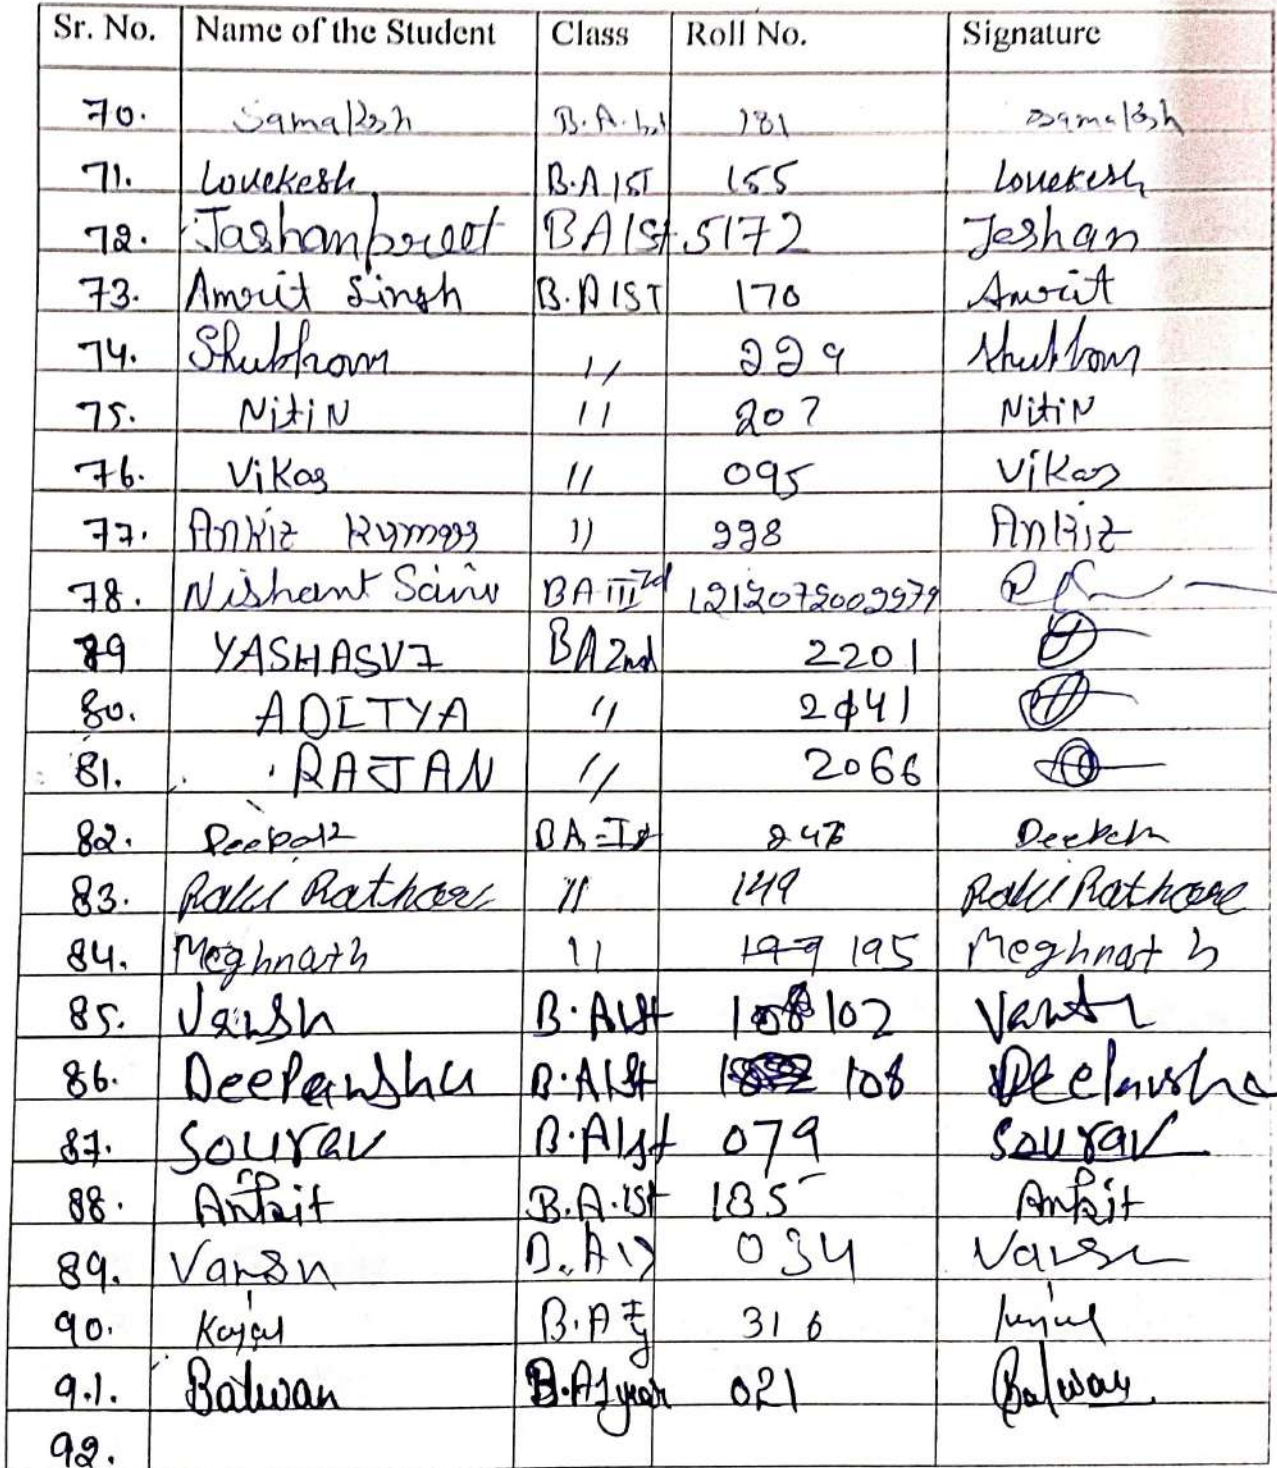 Sr. No. Name of the Student Class Roll No. Signature
70. Samaksh B.A. 181 Samaksh
71. Lovekesh B.A 1ST 155 Lovekesh
72. Jashanpreet BA 1st 5172 Jeshan
73. Amrit Singh B.A 1ST 170 Amrit
74. Shubham " 229 Shubham
75. NitiN " 207 NitiN
76. Vikas " 095 Vikas
77. Ankit Kumar " 228 Ankit
78. Nishant Saini BA III 1212072002979
79 YASHASVI BA 2nd 2201
80. ADITYA " 2041
81. RAJAN " 2066
82. Deepak BA-Ist Deepak
83. Rathore " 149 Rathore
84. Meghnath " 199 195 Meghnath
85. Vansh B.A 1st 102 Vansh
86. Deepanshu B.A 1st 108 Deepanshu
87. Sourav B.A 1st 079 Sourav
88. Ankit B.A. 1st 185 Ankit
89. Vansh B.A 034 Vansh
90. Kajal B.A I 316 Kajal
91. Balwan B.A 1 year 021 Balwan
92.